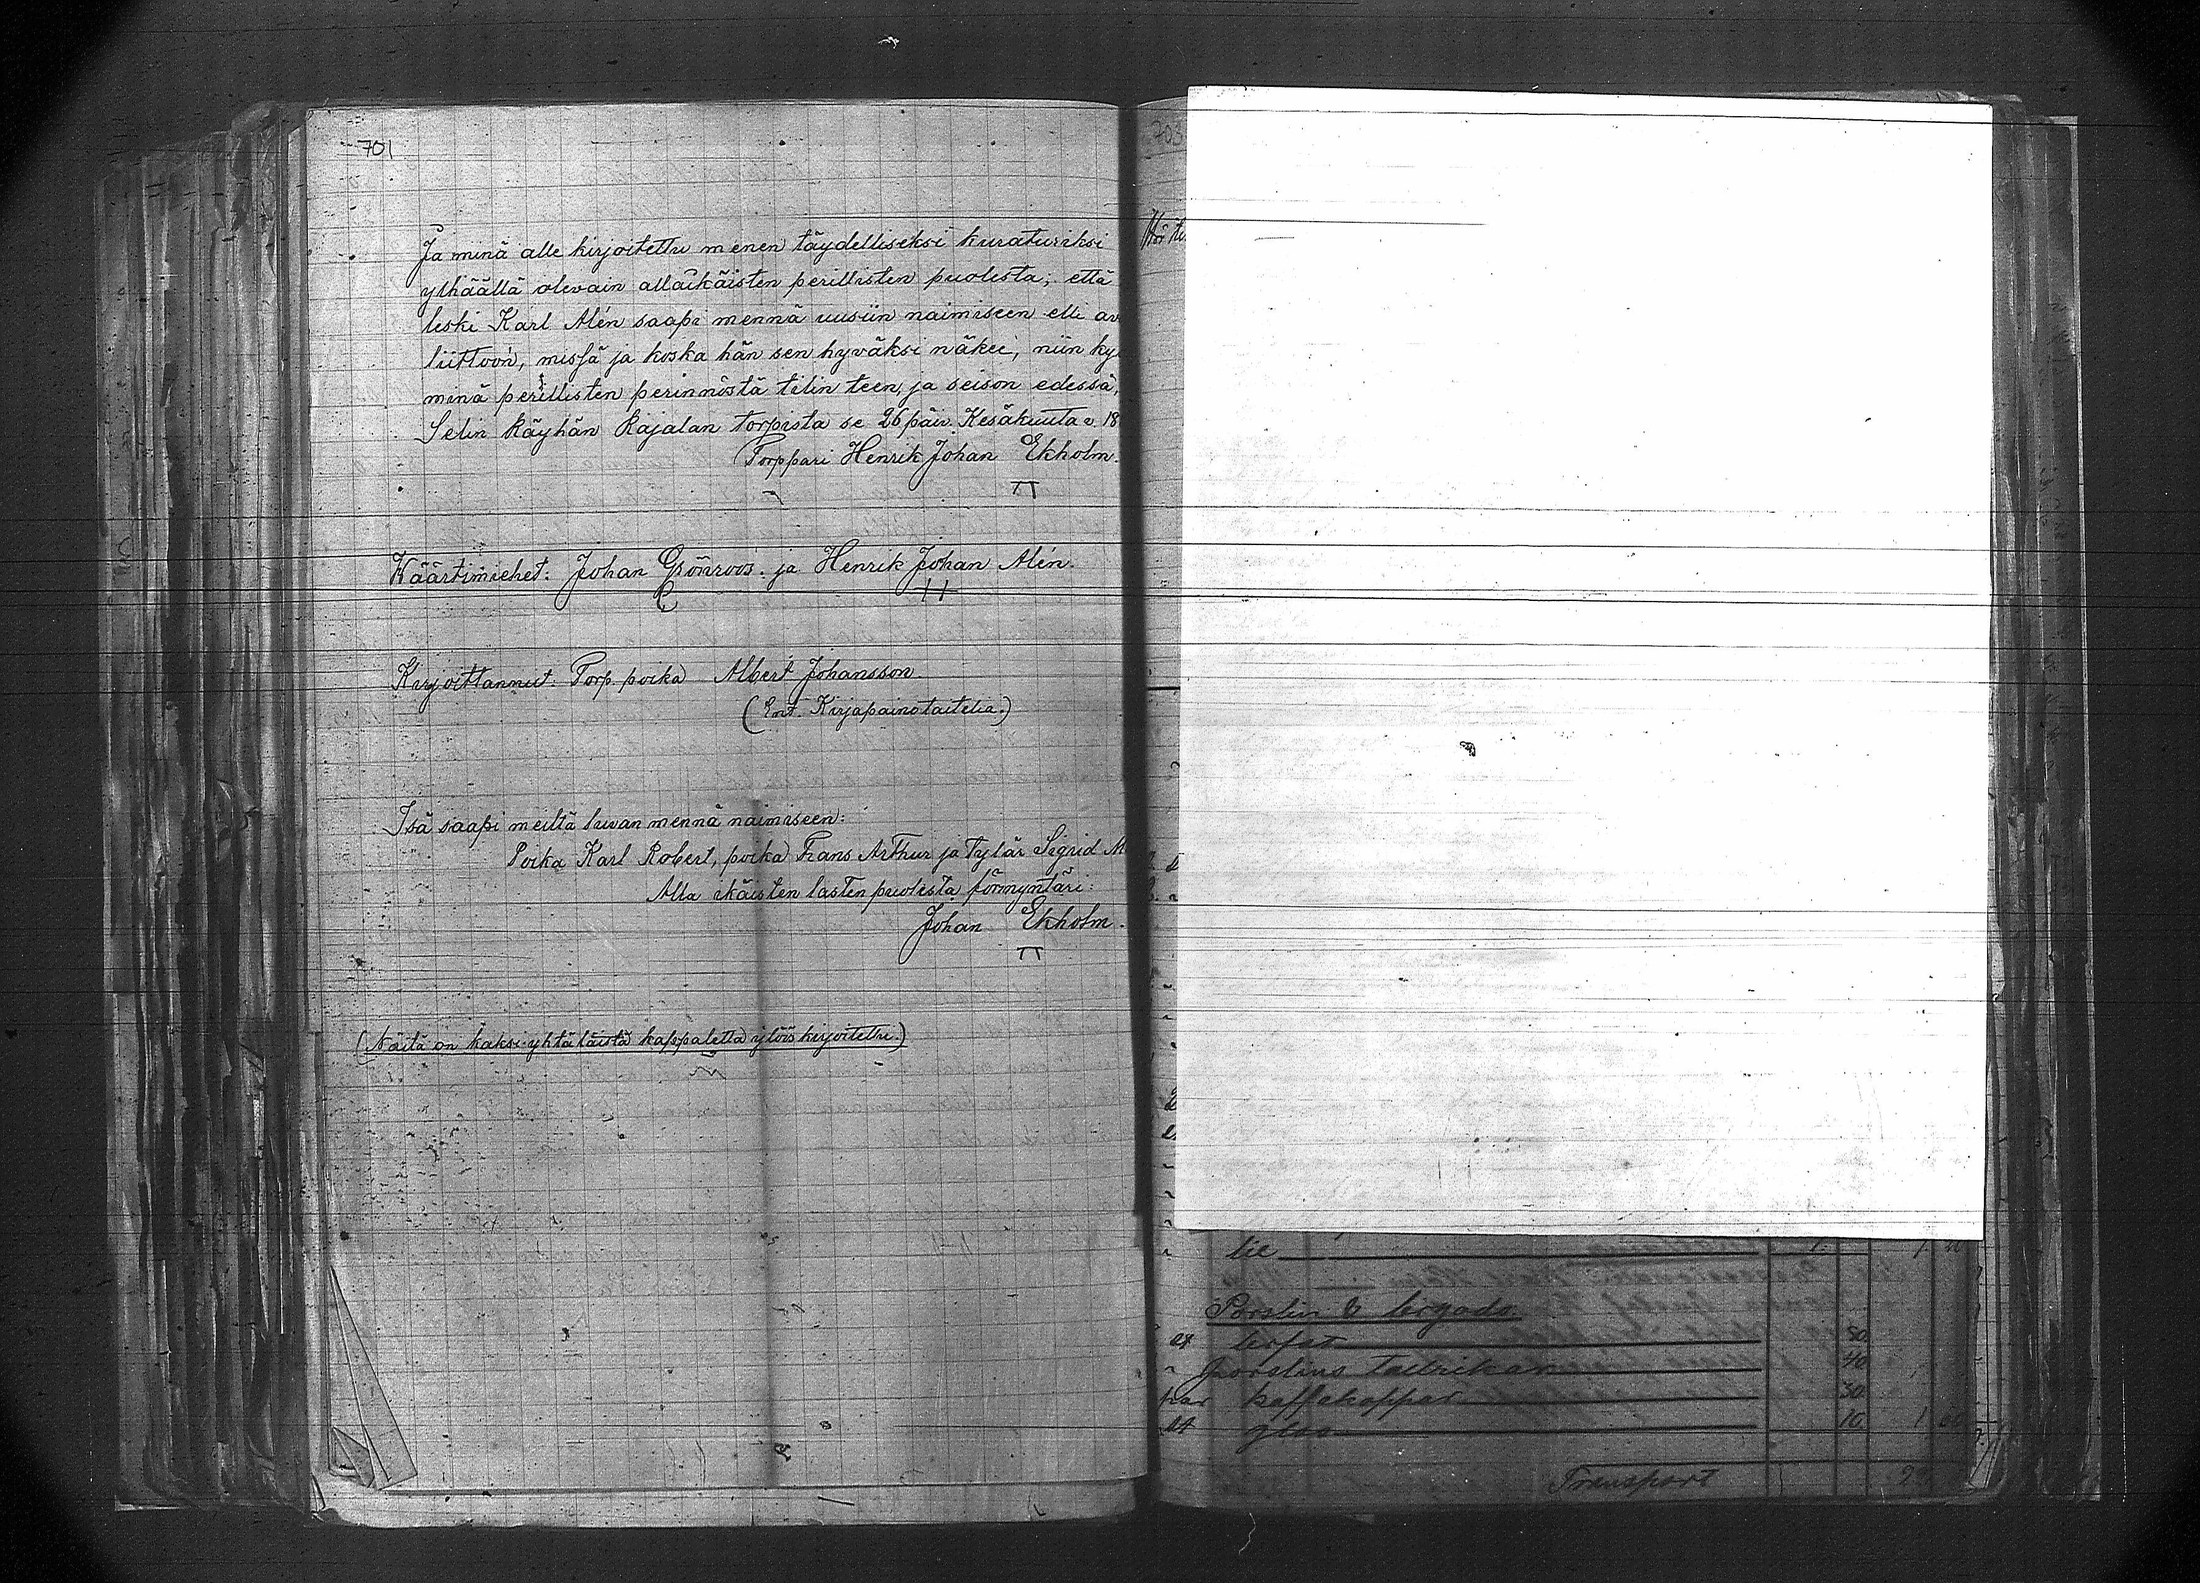 701
Ja minä alle kirjoitettu menen täydelliseksi kuraturiksi
ylhäällä olevain allaikäisten perillisten puolesta; että
leski Karl Alén saapi mennä uusiin naimiseen elli av
liittoon, missä ja koska hän sen hyväksi näkee, niin ky
minä perillisten perinnöstä tilin teen, ja seison edessä,
Selin käyhän Rajalan torpista se 26 päiv. Kesäkuuta v. 18
Torppari Henrik Johan Ekholm.
Wäärtimiehet: Johan Grönroos. ja Henrik Johan Alén.
Kirjoittannut: Torp. poika Albert Johansson
(Ent. Kirjapainotaitelia.)
Isä saapi meiltä luvan mennä naimiseen:
Poika Karl Robert, poika Frans Arthur ja tytär Sigrid M
Alla ikäisten lasten puolesta förmyntäri:
Johan Ekholm.
(Näitä on kaksi yhtäläistä kappaletta ylöös kirjoitettu.)
703
lie
Porslin &
lerfat 80
porslins tallrikar 40
par kaffekoppar 30
st glas 10
Transport